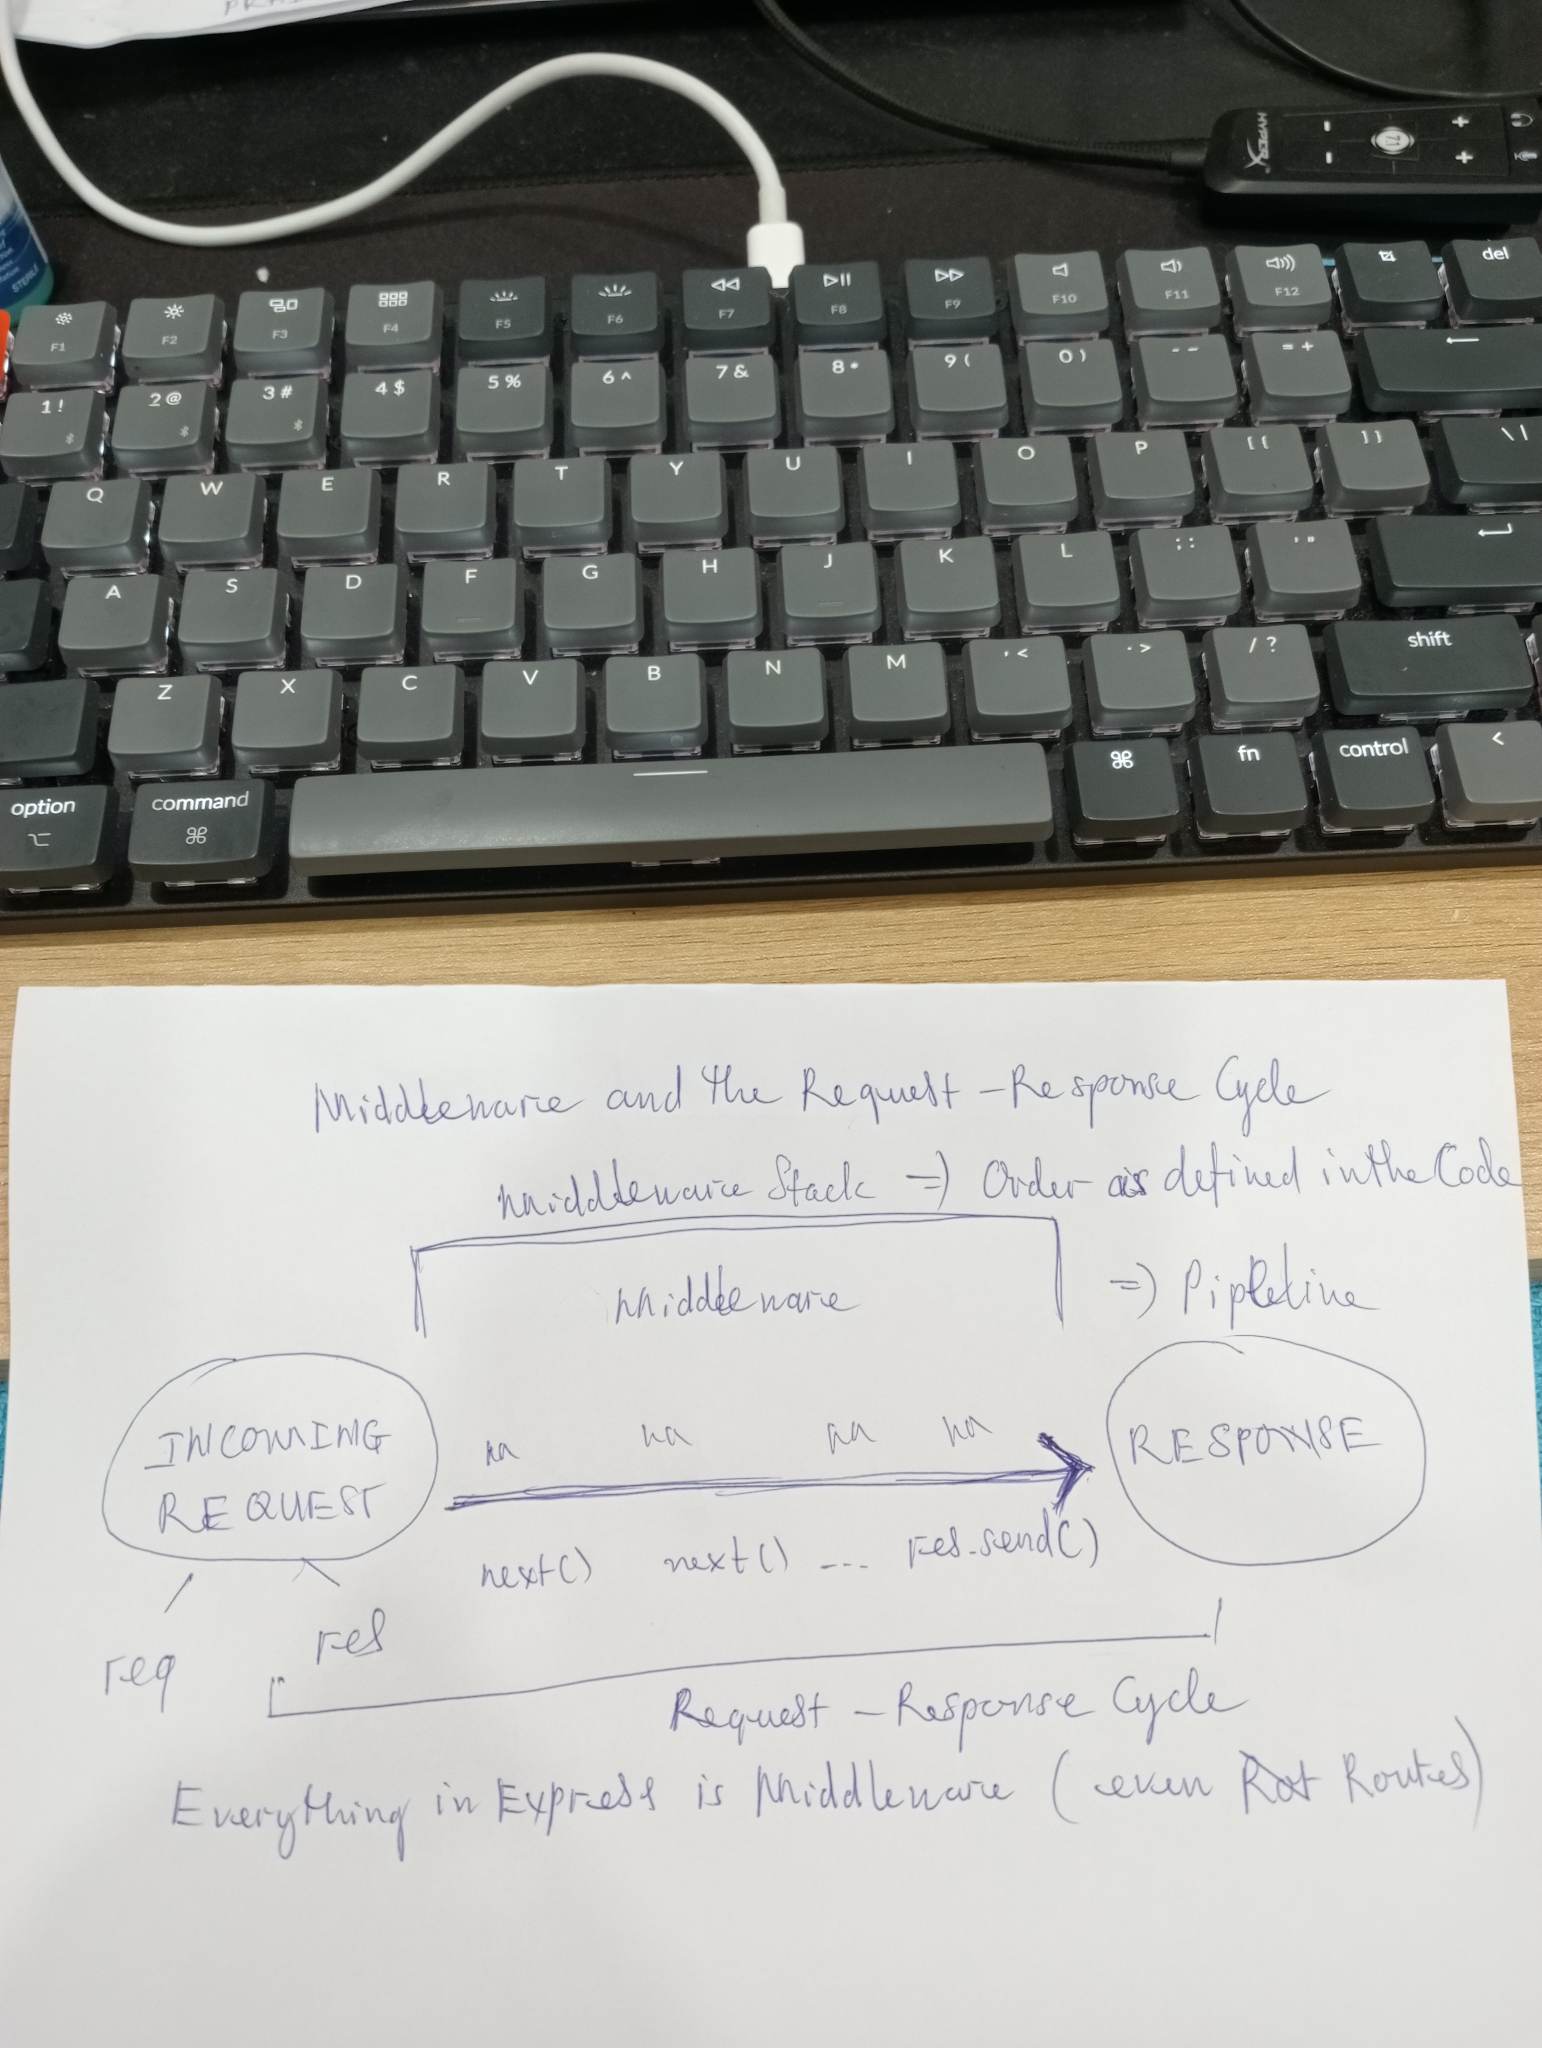 HYPERX
7.1
STERILE
F1 F2 F3 F4 F5 F6 F7 F8 F9 F10 F11 F12 del
1 ! 2 @ 3 # 4 $ 5 % 6 ^ 7 & 8 * 9 ( 0 ) - – = +
Q W E R T Y U I O P [ { ] } \ |
A S D F G H J K L ; : ' "
Z X C V B N M , < . > / ? shift
option command ⌘ ⌘ fn control <
Middleware and the Request - Response Cycle
Middleware Stack => Order as defined in the Code
Middleware => Pipeline
INCOMING
REQUEST
m m m m
RESPONSE
next() next() ... res.send()
req res
Request - Response Cycle
Everything in Express is Middleware (even Routes)